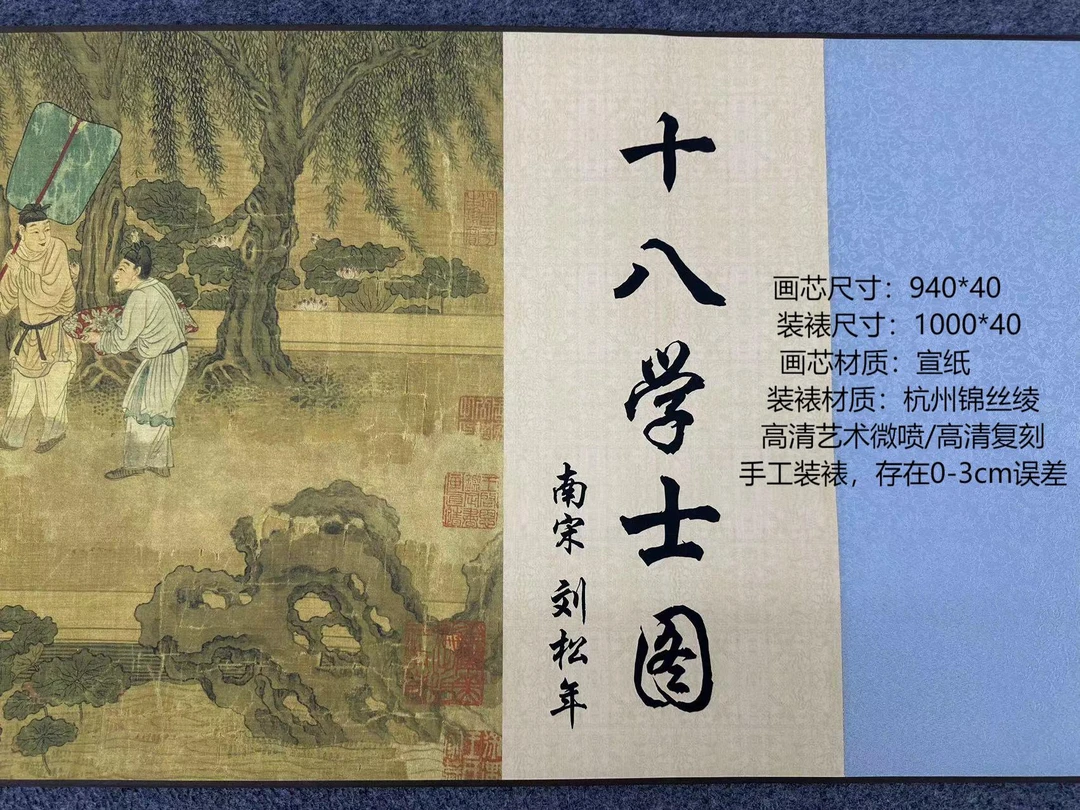 十八学士图
南宋 刘松年
画芯尺寸：940*40
装裱尺寸：1000*40
画芯材质：宣纸
装裱材质：杭州锦丝绫
高清艺术微喷/高清复刻
手工装裱，存在0-3cm误差